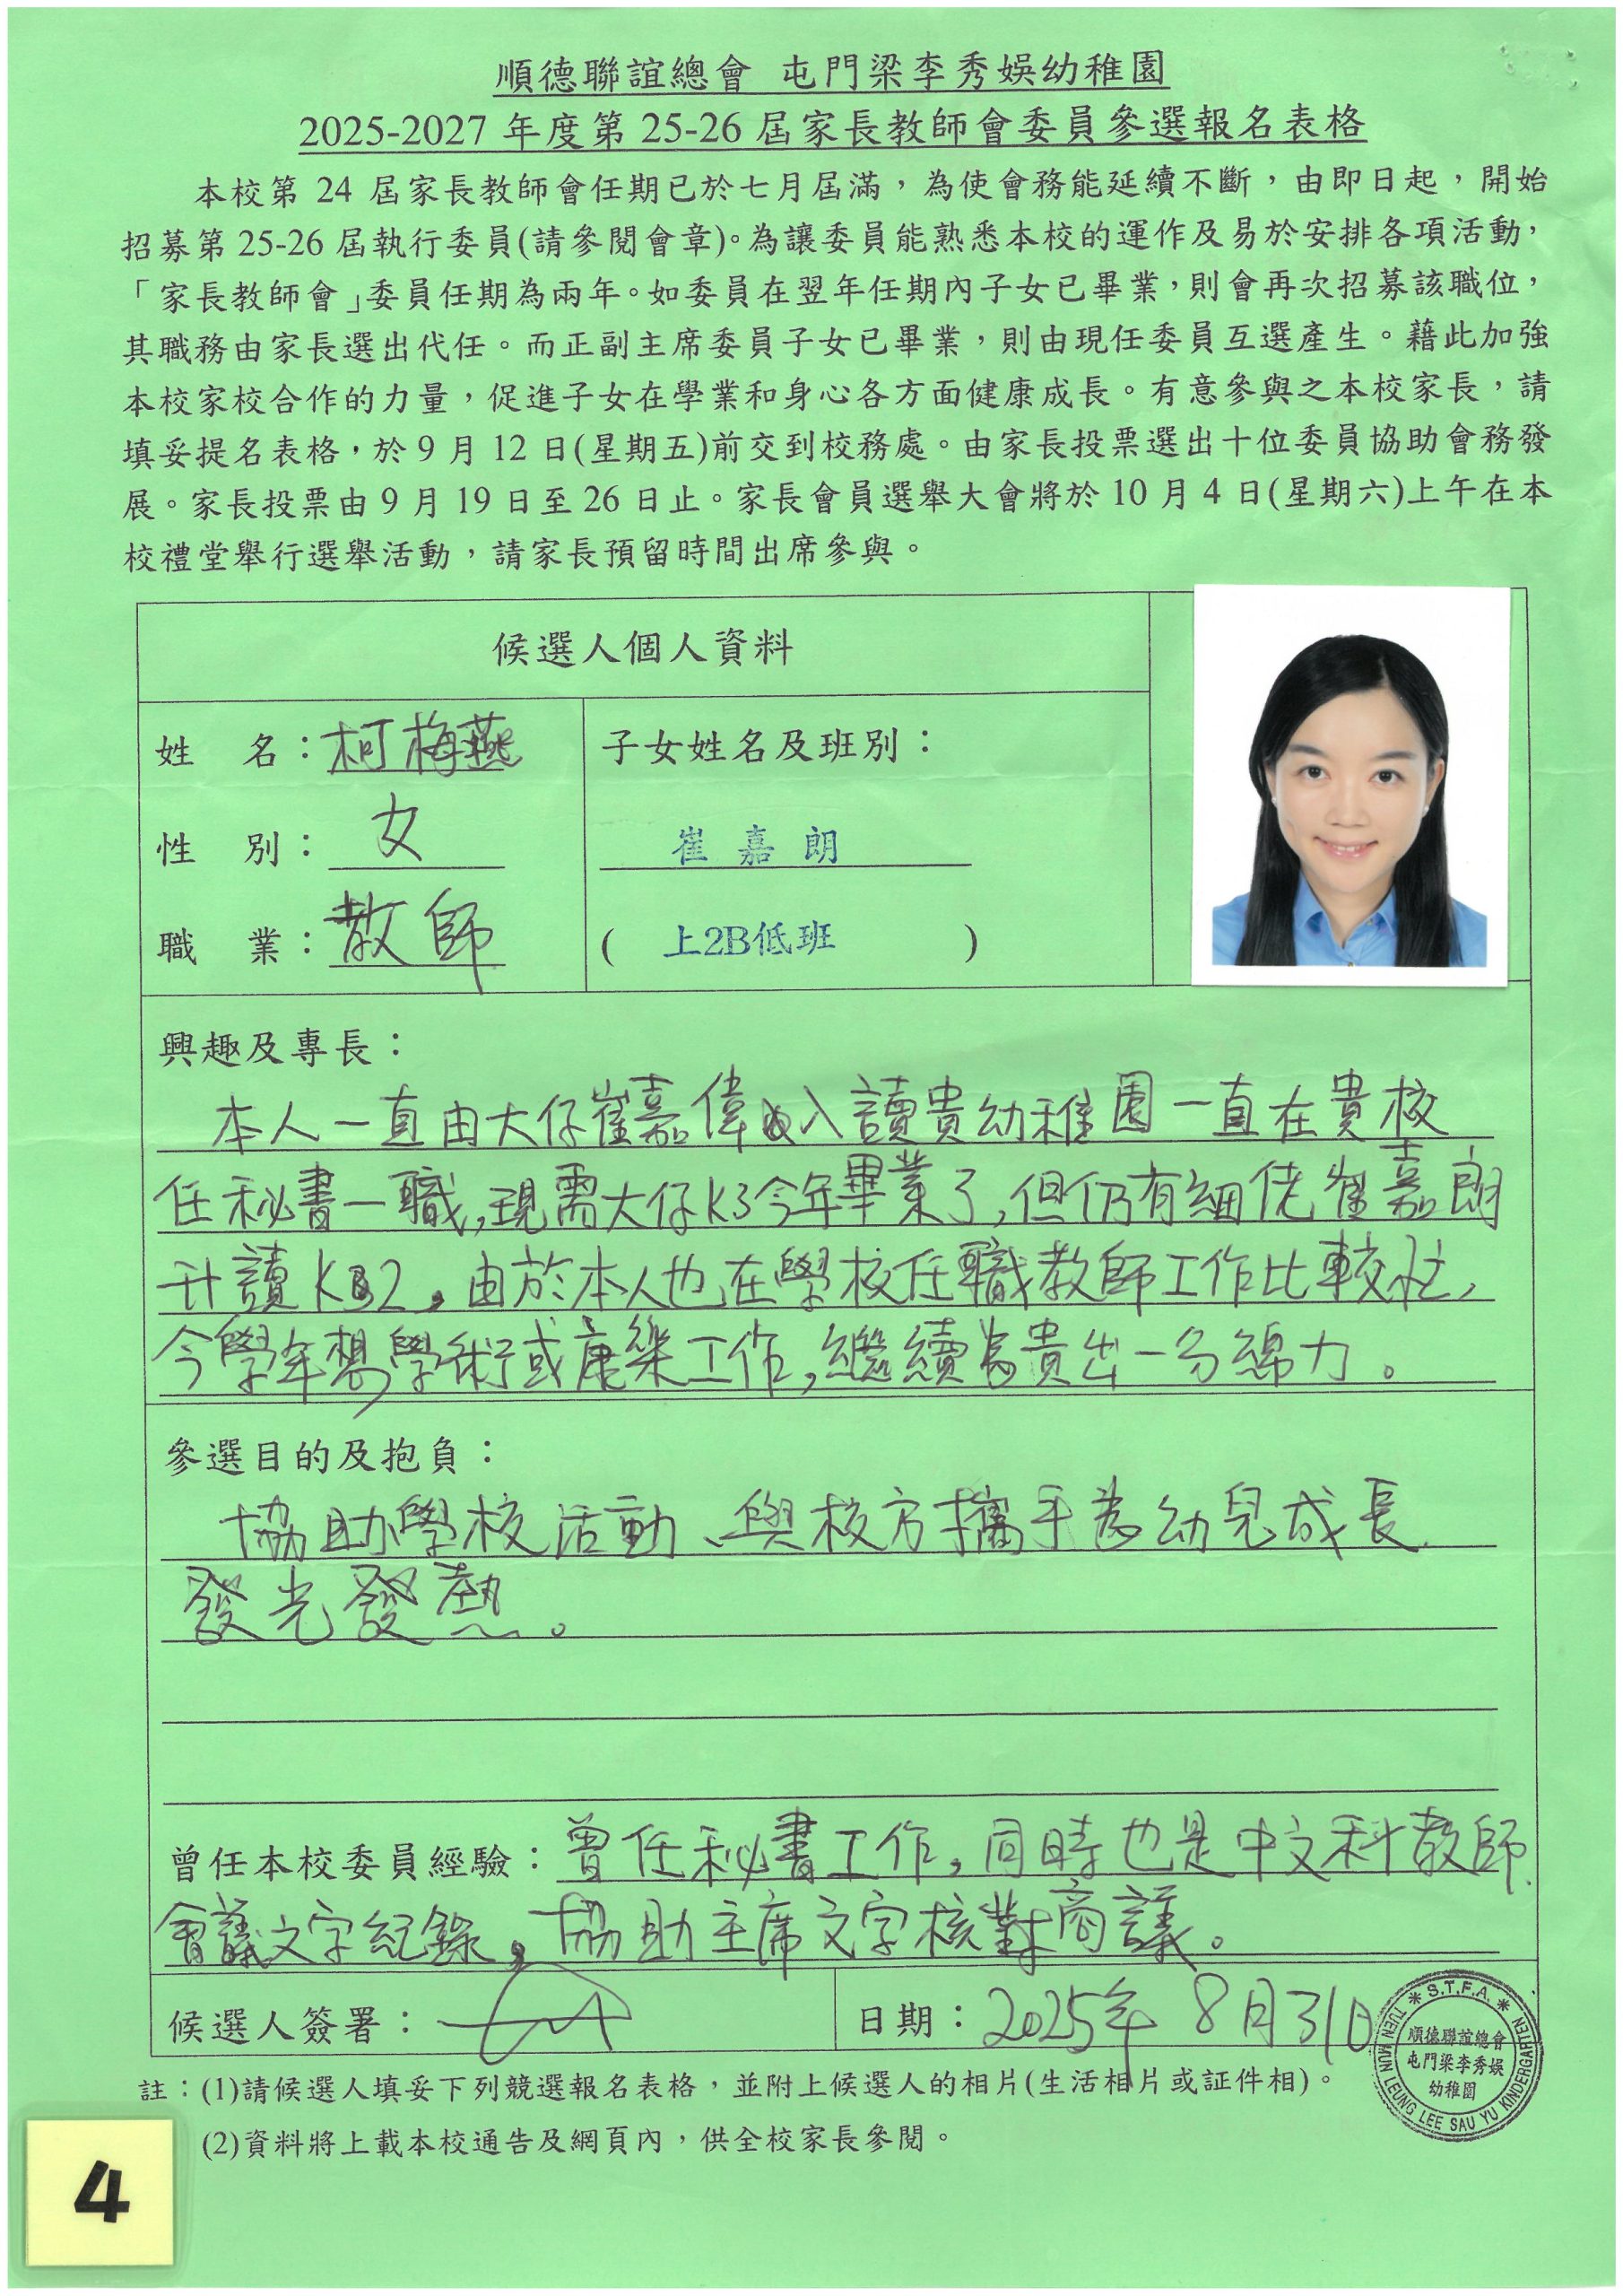 順德聯誼總會 屯門梁李秀娛幼稚園
2025-2027 年度第 25-26 屆家長教師會委員參選報名表格
本校第 24 屆家長教師會任期已於七月屆滿，為使會務能延續不斷，由即日起，開始
招募第 25-26 屆執行委員(請參閱會章)。為讓委員能熟悉本校的運作及易於安排各項活動，
「家長教師會」委員任期為兩年。如委員在翌年任期內子女已畢業，則會再次招募該職位，
其職務由家長選出代任。而正副主席委員子女已畢業，則由現任委員互選產生。藉此加強
本校家校合作的力量，促進子女在學業和身心各方面健康成長。有意參與之本校家長，請
填妥提名表格，於 9 月 12 日(星期五)前交到校務處。由家長投票選出十位委員協助會務發
展。家長投票由 9 月 19 日至 26 日止。家長會員選舉大會將於 10 月 4 日(星期六)上午在本
校禮堂舉行選舉活動，請家長預留時間出席參與。
候選人個人資料
姓 名：柯梅燕
子女姓名及班別：
性 別：女
崔嘉朗
職 業：教師
( 上2B低班 )
興趣及專長：
本人一直由大仔崔嘉偉入讀貴幼稚園一直在貴校
任秘書一職，現需大仔K3今年畢業了，但仍有細佬崔嘉朗
升讀K2。由於本人也在學校任職教師工作比較忙，
今學年想學術或康樂工作，繼續為貴出一分綿力。
參選目的及抱負：
協助學校活動、與校方攜手為幼兒成長
發光發熱。
曾任本校委員經驗：曾任秘書工作，同時也是中文科教師
會議文字紀錄。協助主席文字核對商議。
候選人簽署：
日期：2025年 8月31日
S.T.F.A.
順德聯誼總會
屯門梁李秀娛
幼稚園
TUEN MUN LEUNG LEE SAU YU KINDERGARTEN
註：(1)請候選人填妥下列競選報名表格，並附上候選人的相片(生活相片或証件相)。
(2)資料將上載本校通告及網頁內，供全校家長參閱。
4